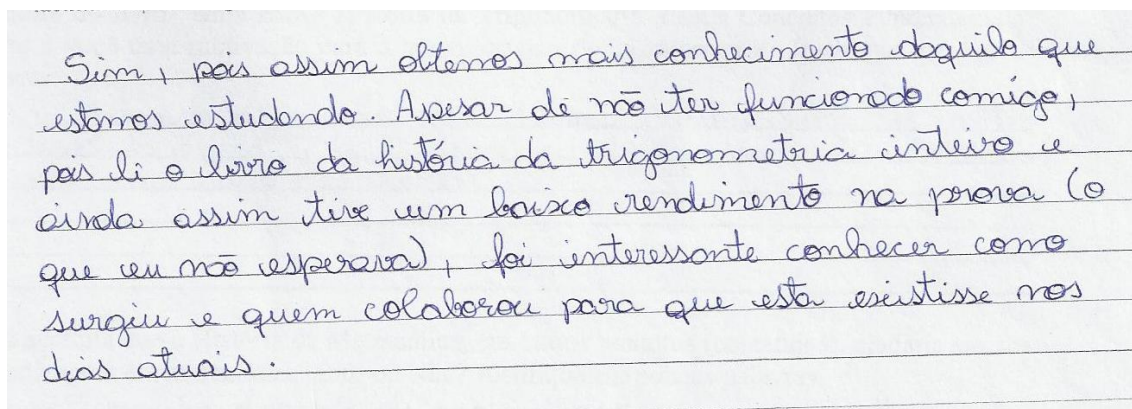 Sim, pois assim obtemos mais conhecimento daquilo que
estamos estudando. Apesar de não ter funcionado comigo,
pois li o livro da história da trigonometria inteiro e
ainda assim tive um baixo rendimento na prova (o
que eu não esperava), foi interessante conhecer como
surgiu e quem colaborou para que esta existisse nos
dias atuais.